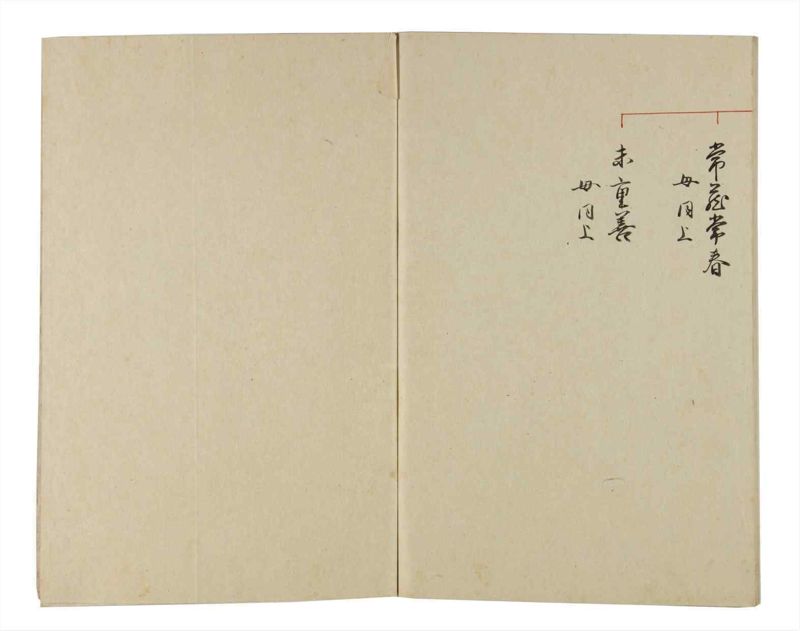 常蔵常春
母同上
末重善
母同上